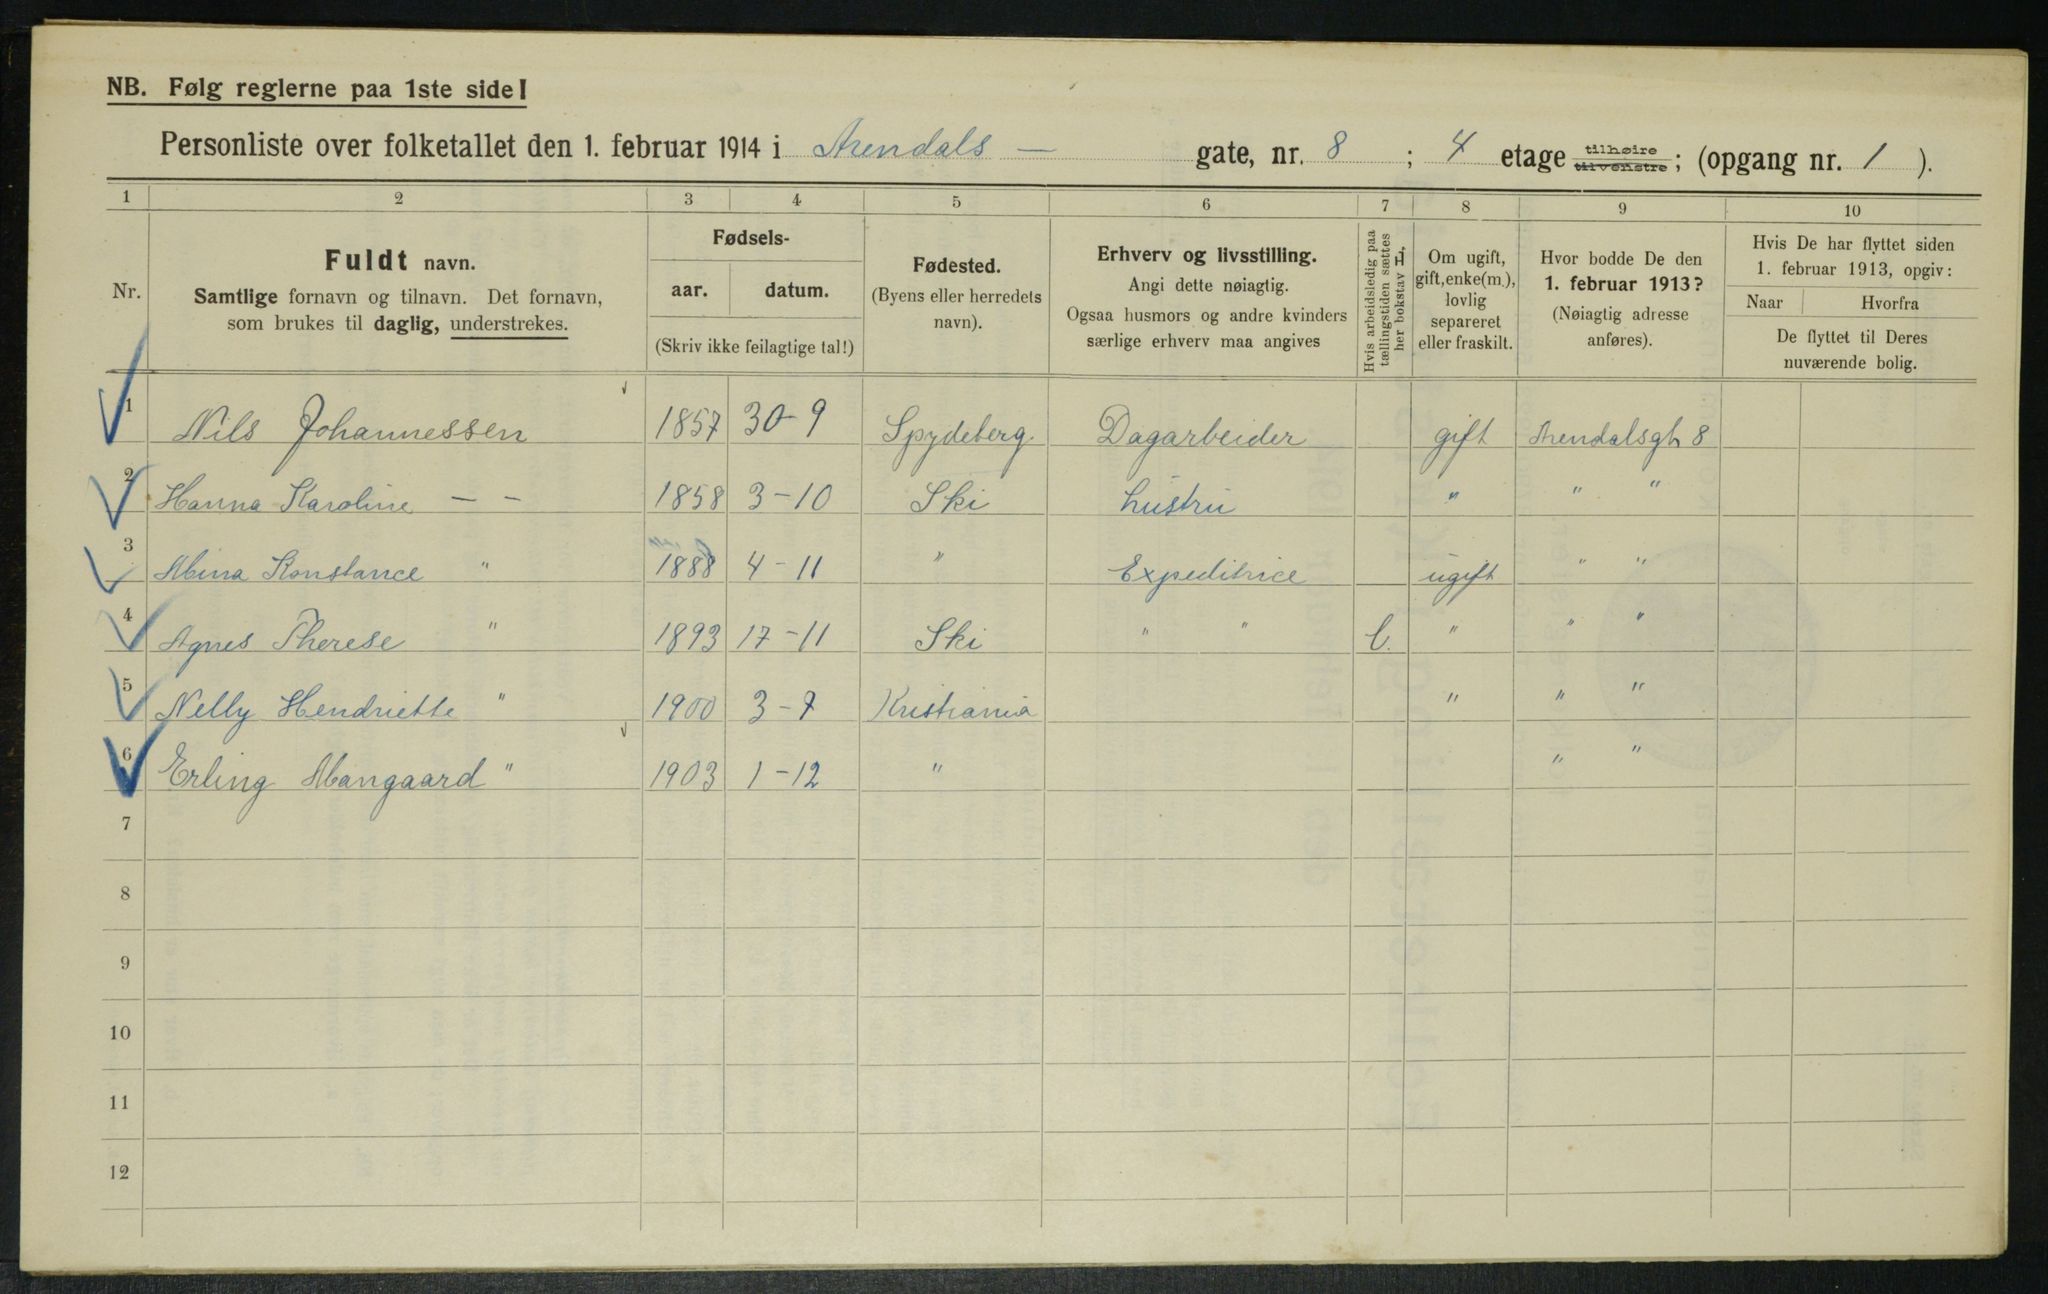 NB. Følg reglerne paa 1ste side!
Personliste over folketallet den 1. februar 1914 i Arendals — gate, nr. 8 ; 4 etage tilhøire tilvenstre; (opgang nr. 1 ).
1 2 3 4 5 6 7 8 9 10
Nr.
Fuldt navn.
Samtlige fornavn og tilnavn. Det fornavn,
som brukes til daglig, understrekes.
Fødsels-
aar. datum.
(Skriv ikke feilagtige tal!)
Fødested.
(Byens eller herredets
navn).
Erhverv og livsstilling.
Angi dette nøiagtig.
Ogsaa husmors og andre kvinders
særlige erhverv maa angives
Hvis arbeidsledig paa
tællingstiden sættes
her bokstav L.
Om ugift,
gift, enke(m.),
lovlig
separeret
eller fraskilt.
Hvor bodde De den
1. februar 1913?
(Nøiagtig adresse
anføres).
Hvis De har flyttet siden
1. februar 1913, opgiv:
Naar Hvorfra
De flyttet til Deres
nuværende bolig.
1 Nils Johannessen 1857 30-9 Spydeberg Dagarbeider gift Arendalsgt. 8
2 Hanna Karoline — — 1858 3-10 Ski hustru " " "
3 Mina Konstance " 1888 4-11 " Expeditrice ugift " "
4 Agnes Therese " 1893 17-11 Ski " " l. " " "
5 Nelly Hendriette " 1900 3-7 Kristiania " " "
6 Erling Mangaard " 1903 1-12 " " "
7
8
9
10
11
12